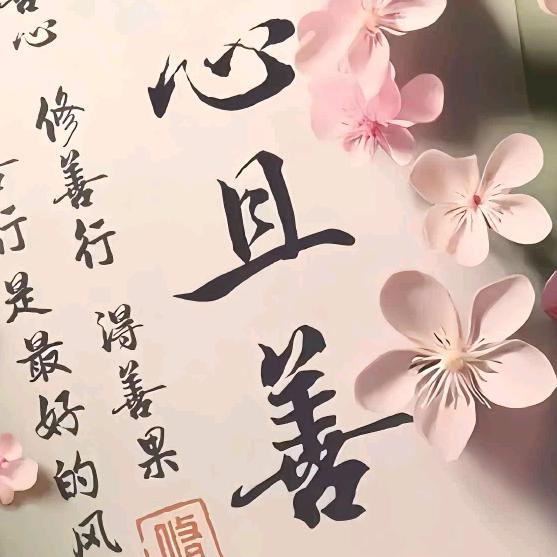 心且善
善心 修善行 得善果
行是最好的风